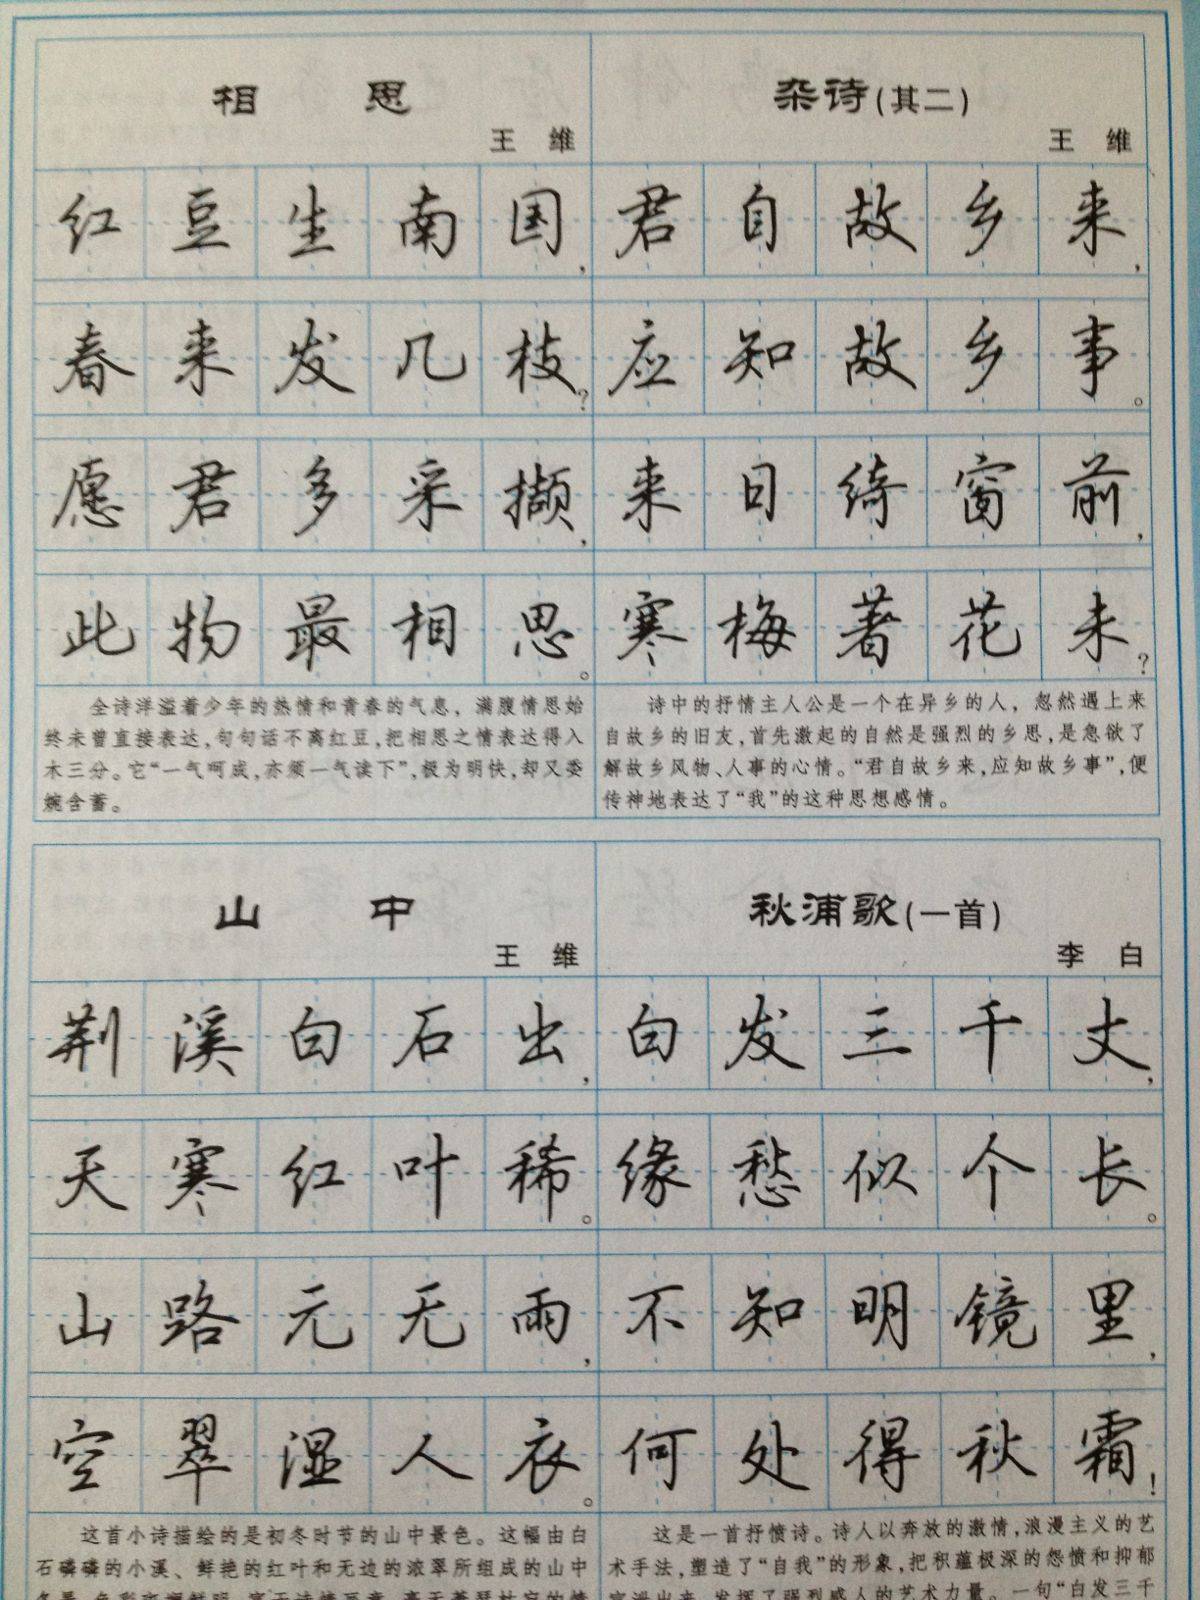 相思
王维
红豆生南国，
春来发几枝？
愿君多采撷，
此物最相思。
全诗洋溢着少年的热情和青春的气息，满腹情思始
终未曾直接表达，句句话不离红豆，把相思之情表达得入
木三分。它“一气呵成，亦须一气读下”，极为明快，却又委
婉含蓄。
杂诗(其二)
王维
君自故乡来，
应知故乡事。
来日绮窗前，
寒梅著花未？
诗中的抒情主人公是一个在异乡的人，忽然遇上来
自故乡的旧友，首先激起的自然是强烈的乡思，是急欲了
解故乡风物、人事的心情。“君自故乡来，应知故乡事”，便
传神地表达了“我”的这种思想感情。
山中
王维
荆溪白石出，
天寒红叶稀。
山路元无雨，
空翠湿人衣。
这首小诗描绘的是初冬时节的山中景色。这幅由白
石磷磷的小溪、鲜艳的红叶和无边的浓翠所组成的山中
秋浦歌(一首)
李白
白发三千丈，
缘愁似个长。
不知明镜里，
何处得秋霜！
这是一首抒愤诗。诗人以奔放的激情，浪漫主义的艺
术手法，塑造了“自我”的形象，把积蕴极深的怨愤和抑郁
宣泄出来，发挥了强烈感人的艺术力量。一句“白发三千